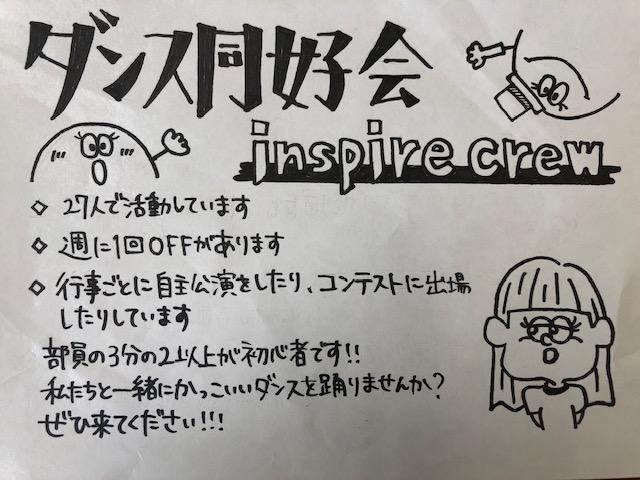 ダンス同好会
inspire crew
◇ 27人で活動しています
◇ 週に1回OFFがあります
◇ 行事ごとに自主公演をしたり、コンテストに出場
したりしています
部員の3分の2以上が初心者です!!
私たちと一緒にかっこいいダンスを踊りませんか?
ぜひ来てください!!!